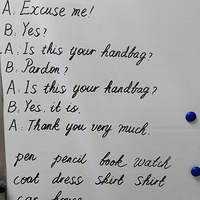 A: Excuse me!
B: Yes?
A: Is this your handbag?
B: Pardon?
A: Is this your handbag?
B: Yes, it is.
A: Thank you very much.
pen pencil book watch
coat dress skirt shirt
car house